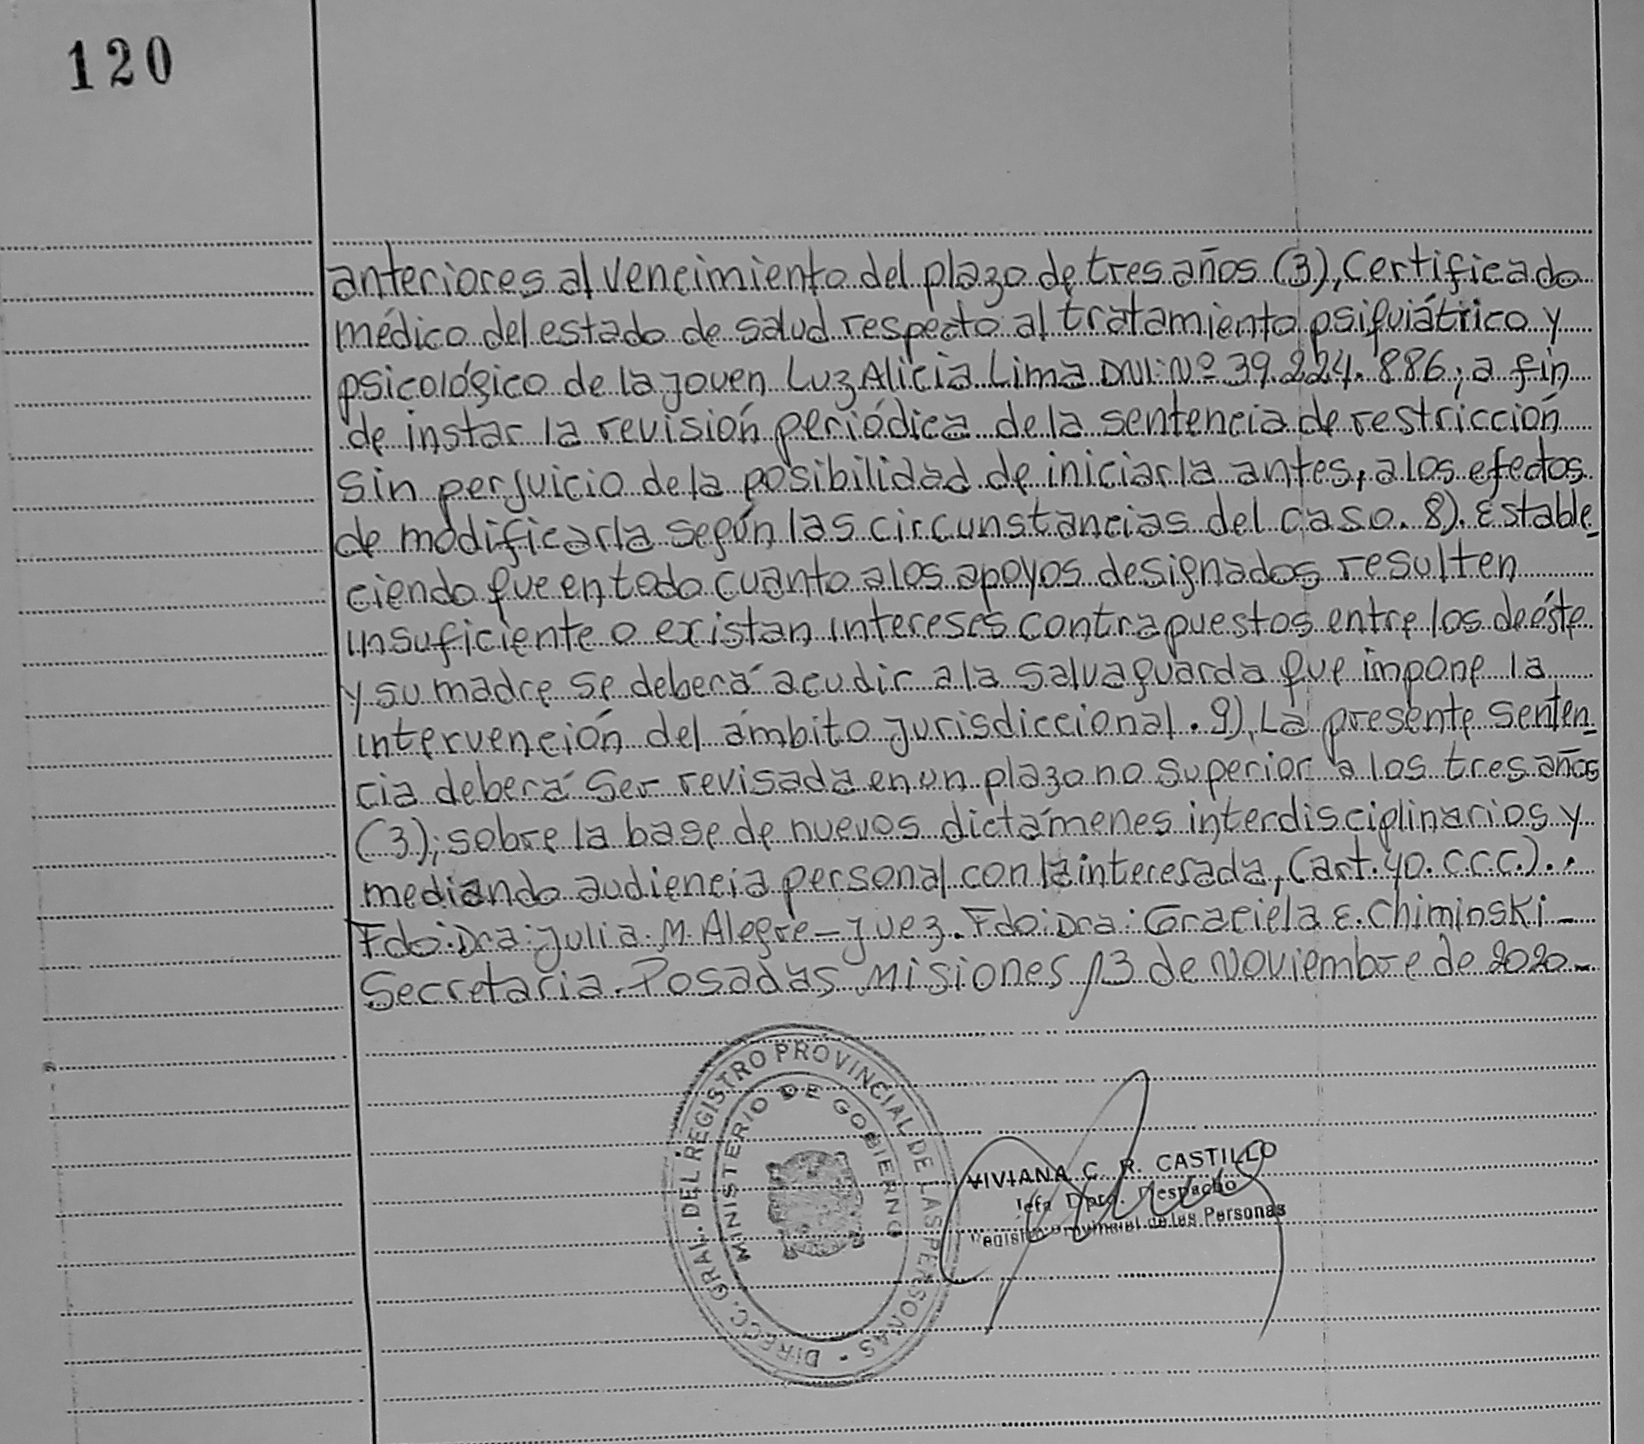 120
anteriores al vencimiento del plazo de tres años (3), certificado
médico del estado de salud respecto al tratamiento psiquiátrico y
psicológico de la joven Luz Alicia Lima DNI: Nº 39.224.886; a fin
de instar la revisión periódica de la sentencia de restricción
sin perjuicio de la posibilidad de iniciarla antes, a los efectos
de modificarla según las circunstancias del caso. 8). Estable_
ciendo que en todo cuanto a los apoyos designados resulten
insuficiente o existan intereses contrapuestos entre los de éste
y su madre se deberá acudir a la salvaguarda que impone la
intervención del ámbito jurisdiccional. 9), La presente senten_
cia deberá ser revisada en un plazo no superior a los tres años
(3); sobre la base de nuevos dictámenes interdisciplinarios y
mediando audiencia personal con la interesada, (art. 40. C.C.C.)..
Fdo: Dra: Julia. M. Alegre - Juez. Fdo: Dra: Graciela E. Chiminski -
Secretaria. Posadas, Misiones, 13 de Noviembre de 2020-
DIRECC. GRAL. DEL REGISTRO PROVINCIAL DE LAS PERSONAS
MINISTERIO DE GOBIERNO
VIVIANA C. R. CASTILLO
Jefa Dpto. Despacho
Registro Provincial de las Personas